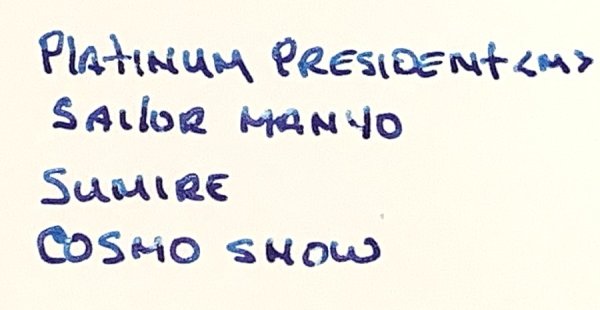 PLAtINUM PRESIDENt <M>
SAilOR MANYO
SUMIRE
COSMO SNOW